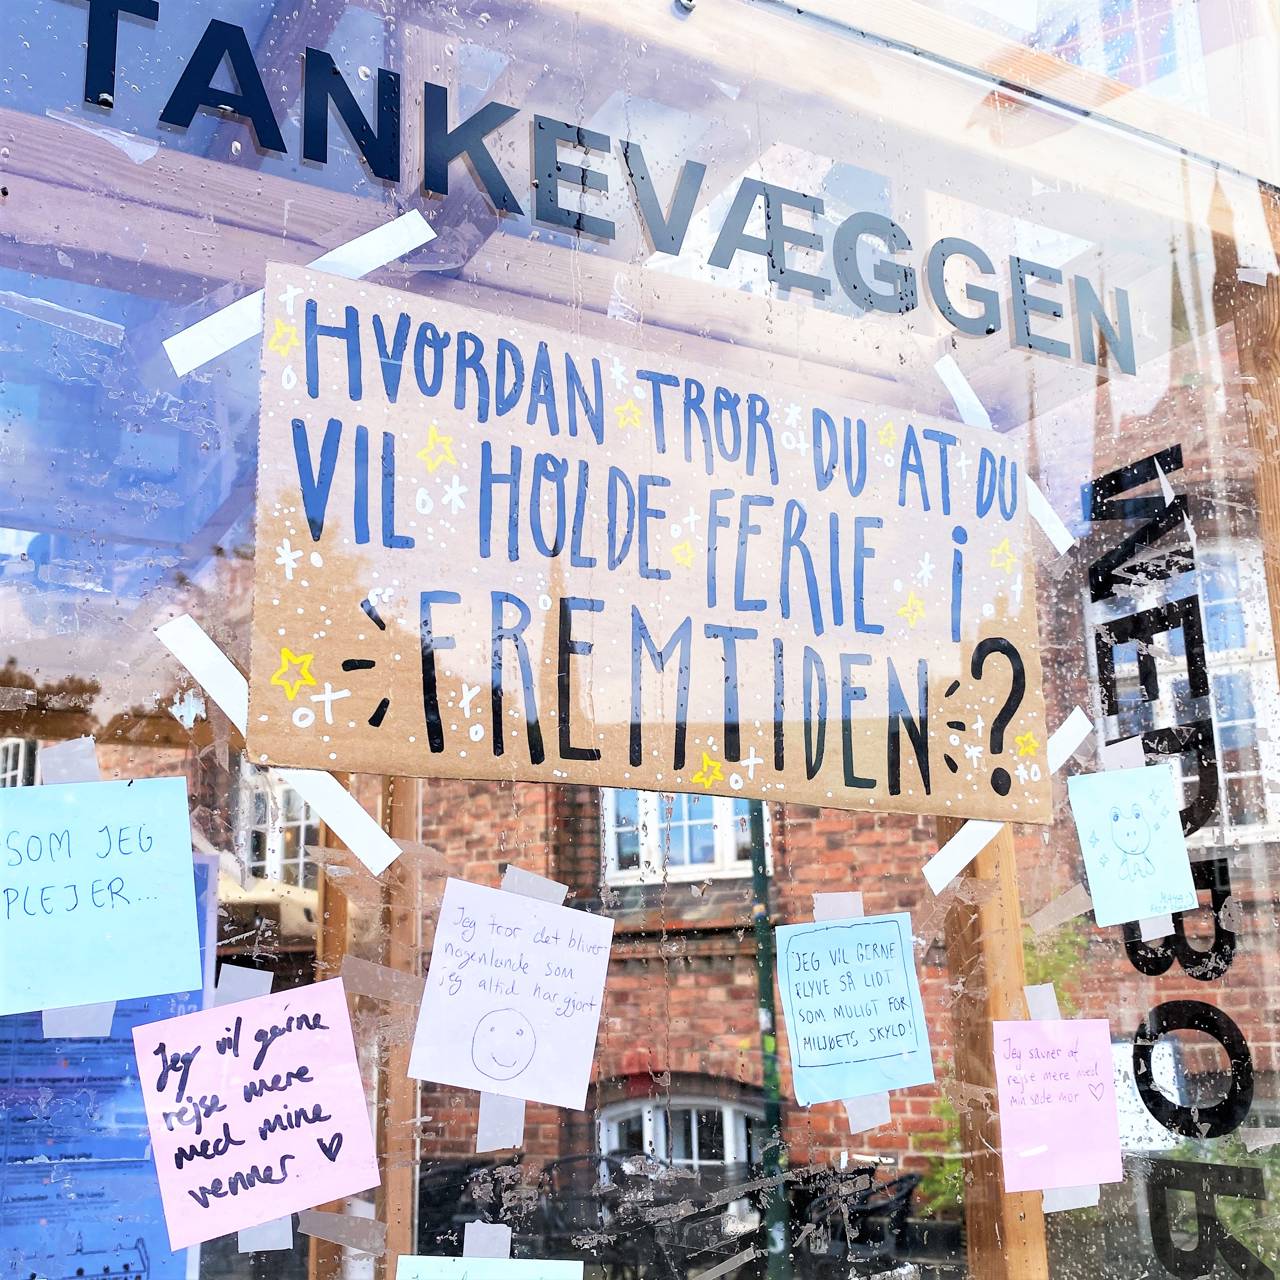 TANKEVÆGGEN
HVORDAN TROR DU AT DU
VIL HOLDE FERIE i
FREMTIDEN?
SOM JEG
PLEJER...
Jeg vil gerne
rejse mere
med mine
venner. ♥
Jeg tror det bliver
nogenlunde som
jeg altid har gjort
JEG VIL GERNE
FLYVE SÅ LIDT
SOM MULIGT FOR
MILJØETS SKYLD!
Jeg savner at
rejse mere med
min søde mor ♡